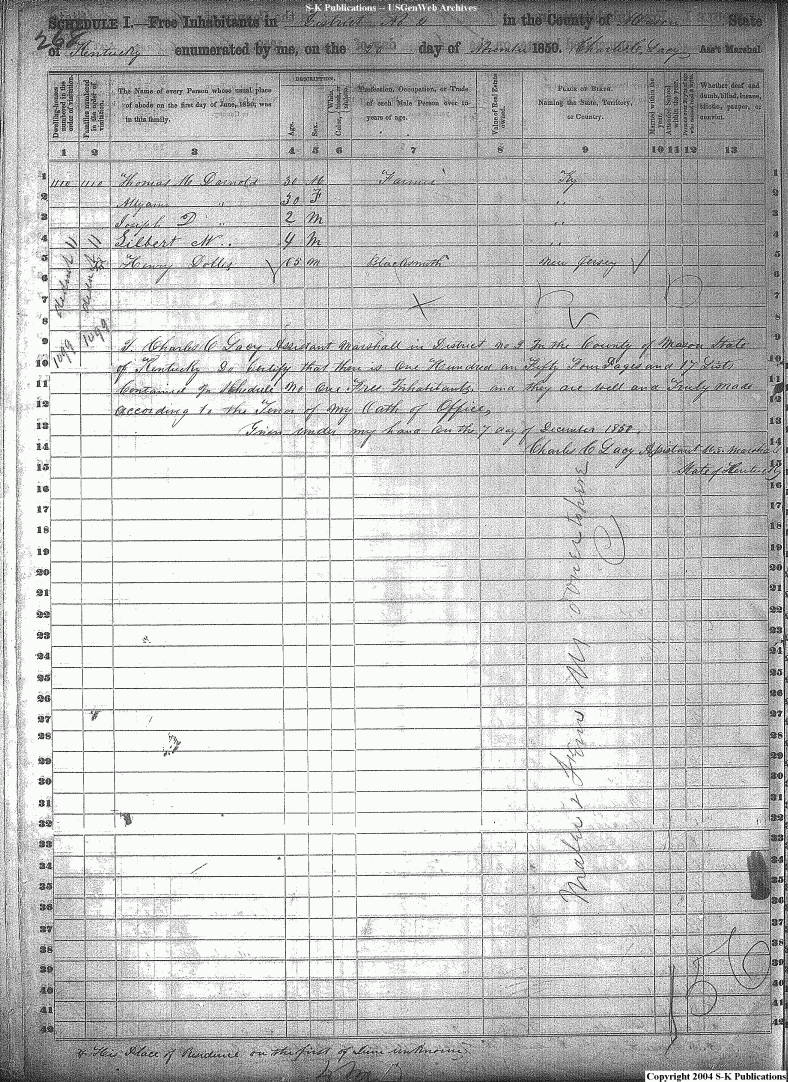 S-K Publications -- USGenWeb Archives
SCHEDULE I.—Free Inhabitants in District No 2 in the County of Mason State
268
of Kentucky enumerated by me, on the day of 1850. Charles C Lacy Ass't Marshal
Dwelling-houses numbered in the order of visitation.
Families numbered in the order of visitation.
The Name of every Person whose usual place of abode on the first day of June, 1850, was in this family.
DESCRIPTION.
Age.
Sex.
White, black, or mulatto.
Profession, Occupation, or Trade of each Male Person over 15 years of age.
Value of Real Estate owned.
PLACE OF BIRTH.
Naming the State, Territory, or Country.
Married within the year.
Attended School within the year.
Whether deaf and dumb, blind, insane, idiotic, pauper, or convict.
1 2 3 4 5 6 7 8 9 10 11 12 13
1 1110 1110 Thomas M Darnold 30 M Farmer Ky 1
2 " 30 F " 2
3 Joseph D " 2 M " 3
4 Gilbert M " 4 M " 4
5 Henry 65 M Blacksmith New Jersey 5
6 6
7 7
8 8
1099 1099
9 I, Charles C Lacy Assistant Marshall in District no 2 In the County of Mason State 9
10 of Kentucky Do Certify that there is One Hundred an Fifty Four Pages and 17 10
11 Contained In Schedule No One Free Inhabitants, and they are well and Truly made 11
12 according to the Tenor of my Oath of Office, 12
13 Given under my hand On the 7 day of December 1850. 13
14 Charles C Lacy Assistant U.S. Marshal 14
15 State of Kentucky 15
16 16
17 17
18 18
19 19
20 20
21 21
22 22
23 23
24 24
25 25
26 26
27 27
28 28
29 29
30 30
31 31
32 32
33 33
34 34
35 35
36 36
37 37
38 38
39 39
40 40
41 41
42 42
His Place of Residence on the first of June unknown
Copyright 2004 S-K Publications